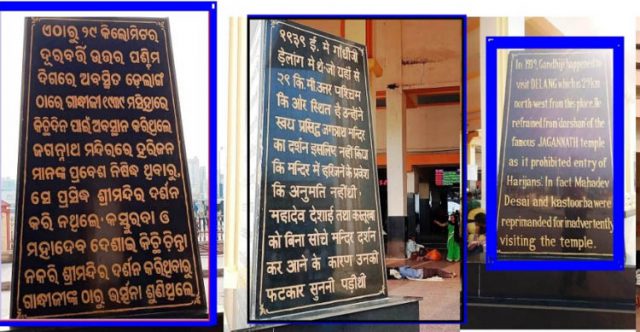 ଏଠାରୁ ୨୯ କିଲୋମିଟର
ଦୂରବର୍ତ୍ତି ଉତ୍ତର ପଶ୍ଚିମ
ଦିଗରେ ଅବସ୍ଥିତ ଡେଲାଙ୍ଗ
ଠାରେ ଗାନ୍ଧୀଜୀ ୧୯୩୯ ମସିହାରେ
କିଛିଦିନ ପାଇଁ ଅବସ୍ଥାନ କରିଥିଲେ
ଜଗନ୍ନାଥ ମନ୍ଦିରରେ ହରିଜନ
ମାନଙ୍କ ପ୍ରବେଶ ନିଷିଦ୍ଧ ଥିବାରୁ,
ସେ ପ୍ରସିଦ୍ଧ ଶ୍ରୀମନ୍ଦିର ଦର୍ଶନ
କରି ନଥିଲେ. କସ୍ତୁରବା ଓ
ମହାଦେବ ଦେଶାଇ କିଛିଚିନ୍ତା
ନକରି ଶ୍ରୀମନ୍ଦିର ଦର୍ଶନ କରିଥିବାରୁ
ଗାନ୍ଧୀଜୀଙ୍କ ଠାରୁ ଭର୍ତ୍ସନା ଶୁଣିଥିଲେ.
१९३९ ई. में गांधीजी
डेलांग में थे-जो यहाँ से
२९ कि.मी.उत्तर पश्चिम
कि ओर स्थित है उन्होंने
स्वयं प्रसिद्ध जगन्नाथ मन्दिर
का दर्शन इसलिए नहीं किया
कि मन्दिर में हरिजनों के प्रवेश
कि अनुमति नहींथी.
महादेव देशाई तथा कस्तुरबा
को बिना सोचे मन्दिर दर्शन
कर आने के कारण उनकी
फटकार सुननी पड़ीथी
In 1939, Gandhiji happened to
visit DELANG which is 29 km
north west from this place. He
refrained from 'darshan' of the
famous JAGANNATH temple
as it prohibited entry of
Harijans. In fact Mahadev
Desai and kastoorba were
reprimanded for inadvertently
visiting the temple.